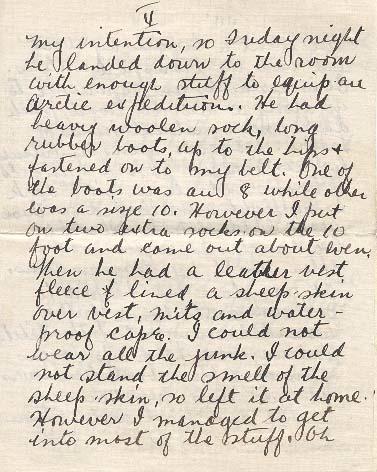 4
my intention, so Friday night
he landed down to the room
with enough stuff to equip an
arctic expedition. He had
heavy woolen sock, long
rubber boots, up to the hips &
fastened on to my belt. One of
the boats was an 8 while other
was a size 10. However I put
on two extra socks on the 10
foot and come out about even.
Then he had a leather vest
fleece lined, a sheep skin
over vest, mits and water-
proof cape. I could not
wear all the junk. I could
not stand the smell of the
sheep skin, so left it at home.
However I managed to get
into most of the stuff. Oh